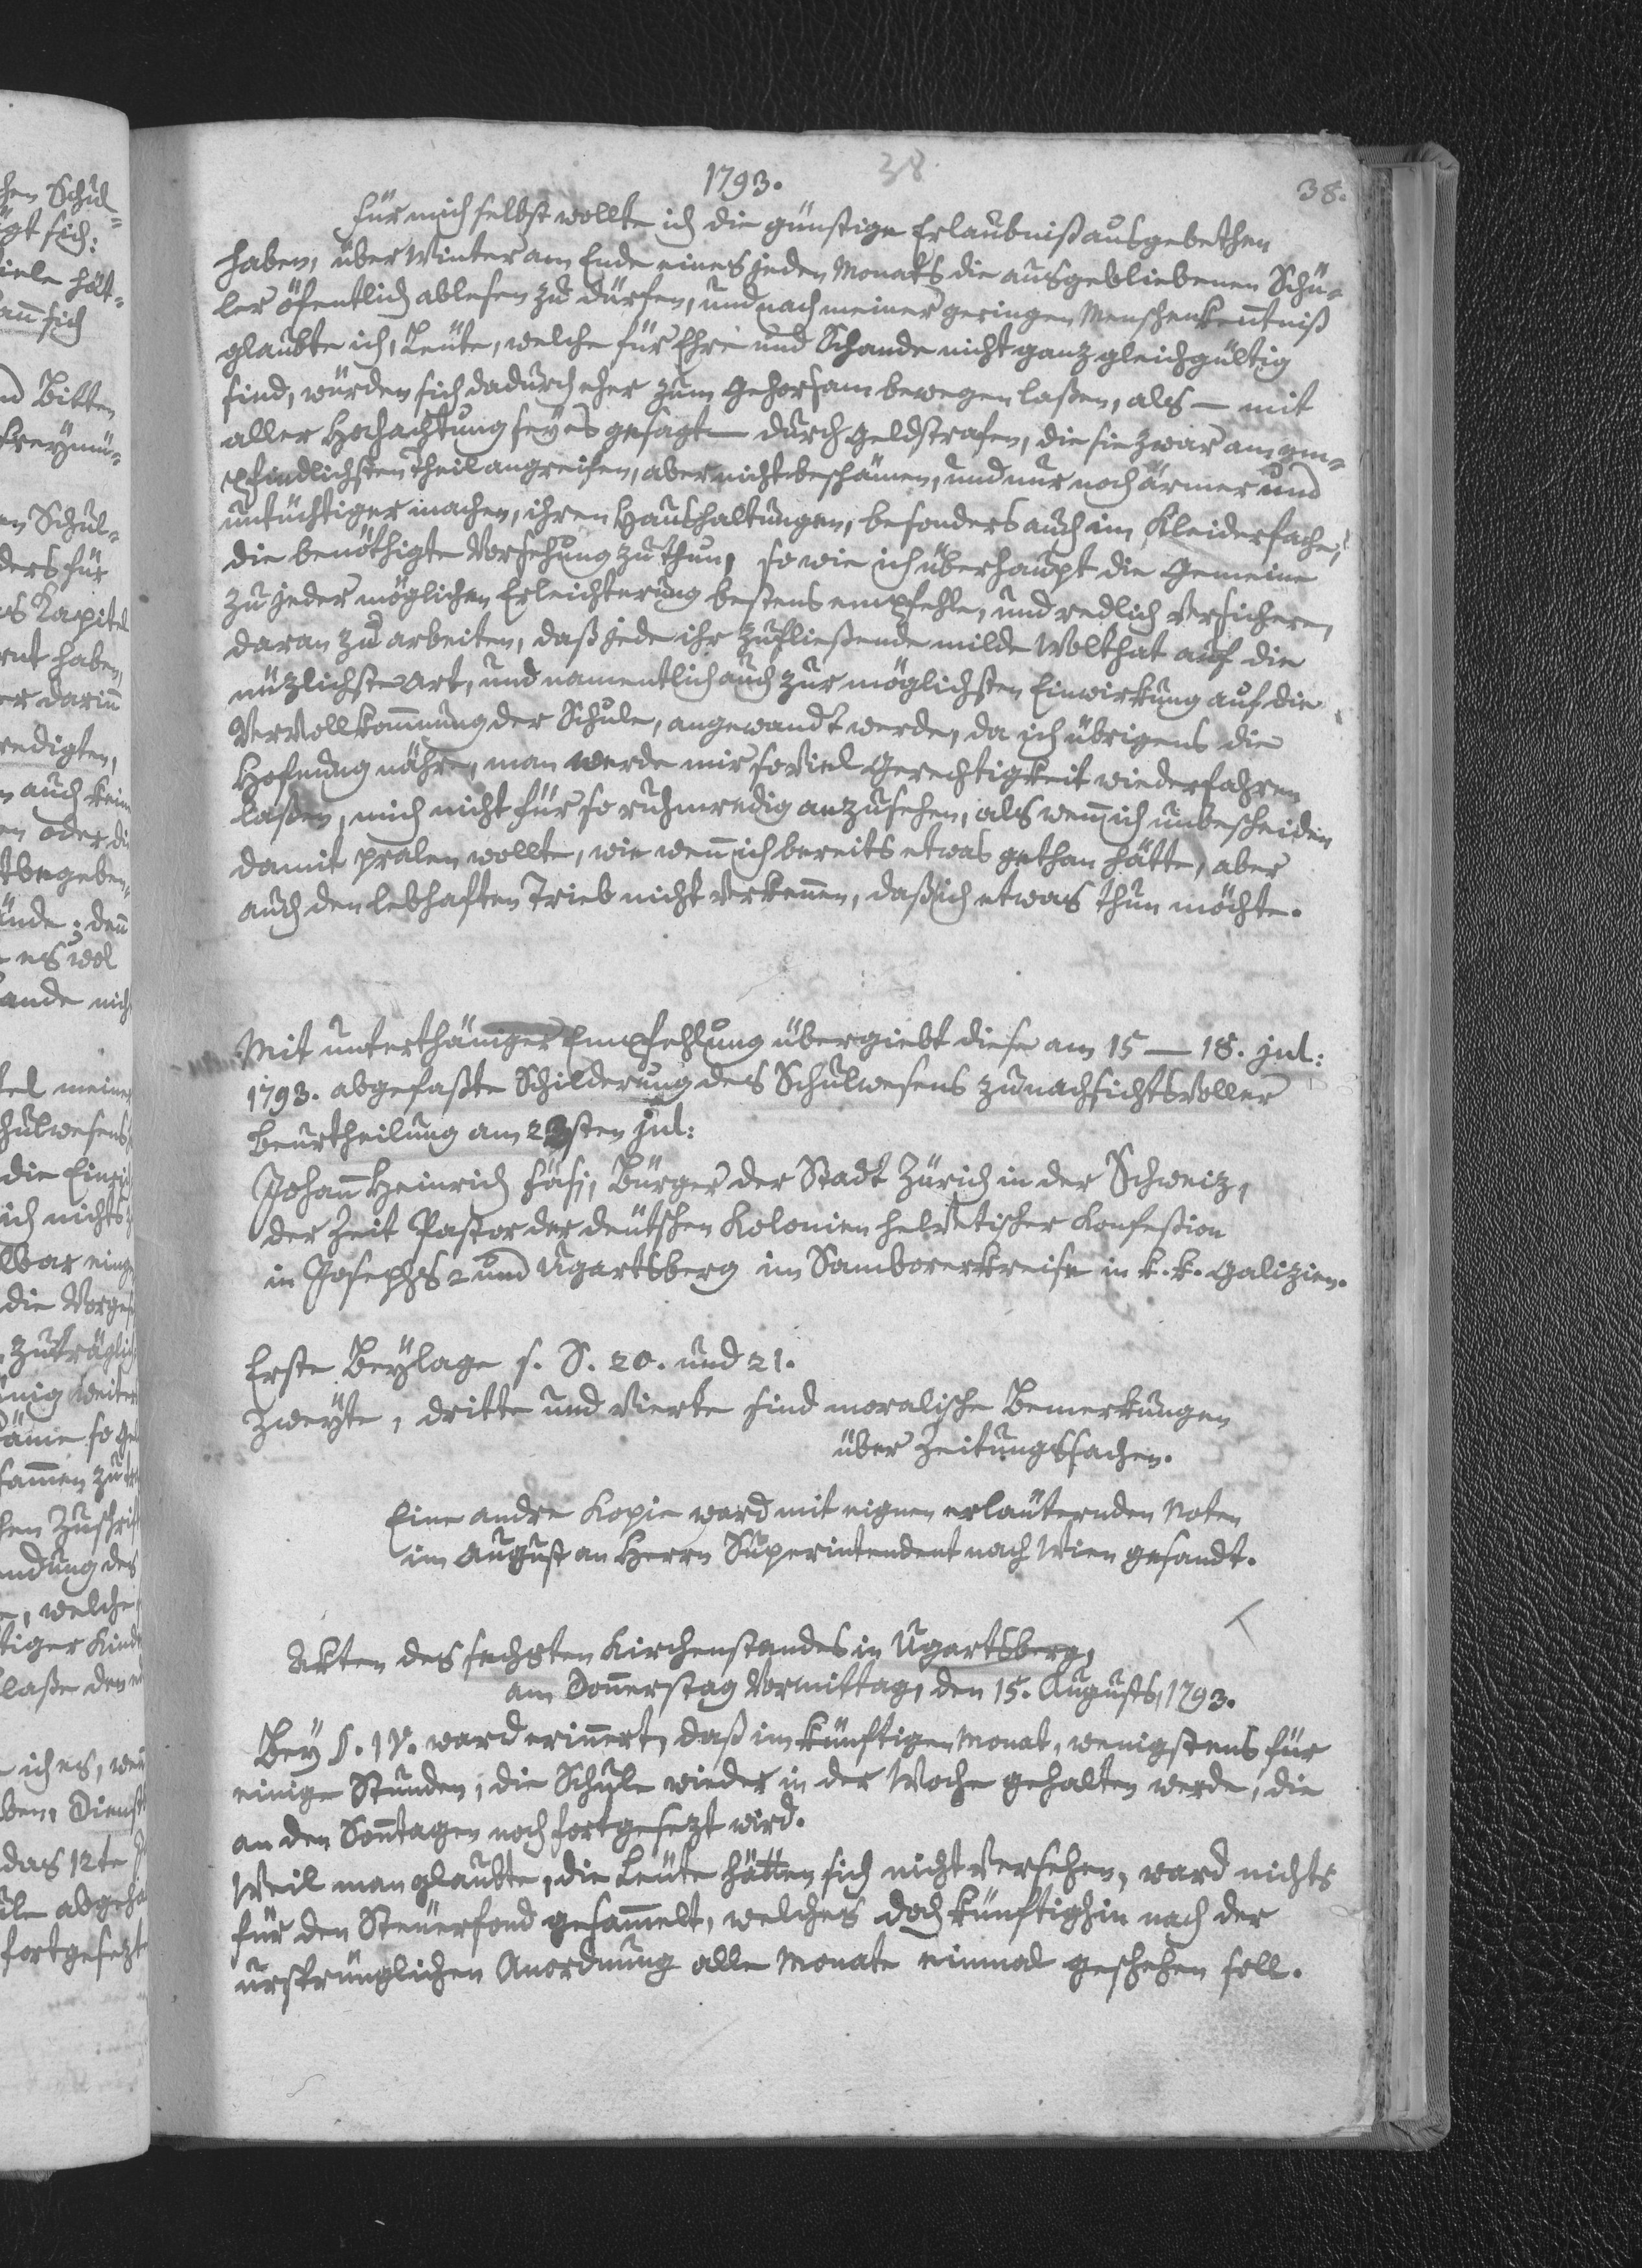 1793.
38
38.
Für mich selbst wollte ich die günstige Erlaubniß ausgebethen
haben, über Winter am Ende eines jeden Monats die ausgebliebenen Schü-
ler öfentlich ablesen zu dürfen, und nach meiner geringen Menschenkentniß
glaubte ich, Leüte, welche für Ehre und Schande nicht ganz gleichgültig
sind, würden sich dadurch eher zum Gehorsam bewegen laßen, als — mit
aller Hochachtung seÿ es gesagt — durch Geldstrafen, die sie zwar am em-
pfindlichsten Theil angreifen, aber nicht beschämen, und nur noch ärmer und
untüchtiger machen, ihren Haushaltungen, besonders auch im Kleiderfache,
die benöthigte Vorsehung zu thun, so wie ich überhaupt die Gemeine
zu jeder möglichen Erleichterung bestens empfehle, und redlich versichere,
daran zu arbeiten, daß jede ihr zufließende milde Wolthat auf die
nüzlichste Art, und namentlich auch zur möglichsten Einwirkung auf die
Vervollkom̄nung der Schule, angewandt werde, da ich übrigens die
Hofnung nähre, man werde mir soviel Gerechtigkeit wiederfahren
laßen, mich nicht für so ruhmredig anzusehen, als wen̄ ich unbescheiden
damit pralen wollte, wie wen̄ ich bereits etwas gethan hätte, aber
auch den lebhaften Trieb nicht verken̄en, daß ich etwas thun möchte.
Mit unterthäniger Empfehlung übergiebt diese am 15 — 18. Jul:
1793. abgefaßte Schilderung des Schulwesens zu nachsichtsvoller
Beurtheilung am 23sten Jul:
Johan̄ Heinrich Fäsi, Bürger der Stadt Zürich in der Schweiz,
der Zeit Pastor der deütschen Kolonien helvetischer Konfeßion
in Josephs- und Ugartsberg im Samborerkreise in k. k. Galizien.
Erste Beÿlage s. S. 20. und 21.
Zweÿte, dritte und vierte sind moralische Bemerkungen
über Zeitungssachen.
Eine andre Kopie ward mit eignen erlaüternden Noten
im August an Herrn Superintendent nach Wien gesandt.
Akten des sechsten Kirchenstandes in Ugartsberg,
am Don̄erstag Vormittag, den 15. Augusts, 1793.
Beÿ §. IV. ward erin̄ert, daß im künftigen Monat, wenigstens für
einige Stunden, die Schule wieder in der Woche gehalten werde, die
an den Son̄tagen noch fortgesezt wird.
Weil man glaubte, die Leüte hätten sich nicht versehen, ward nichts
für den Steüerfond gesam̄elt, welches doch künftighin nach der
ursprünglichen Anordnung alle Monate einmal geschehen soll.